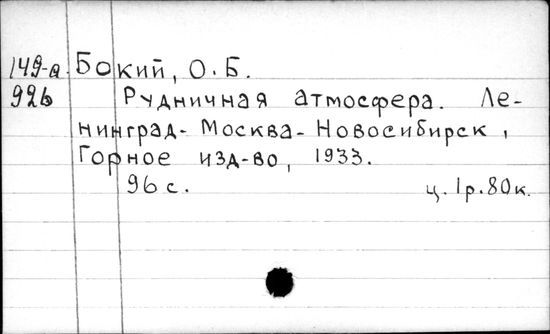 149-а Бокий, О.Б.
926 Рудничная атмосфера. Ле-
нинград-Москва-Новосибирск,
Горное изд-во, 1933.
96 с. ц. 1р.80к.